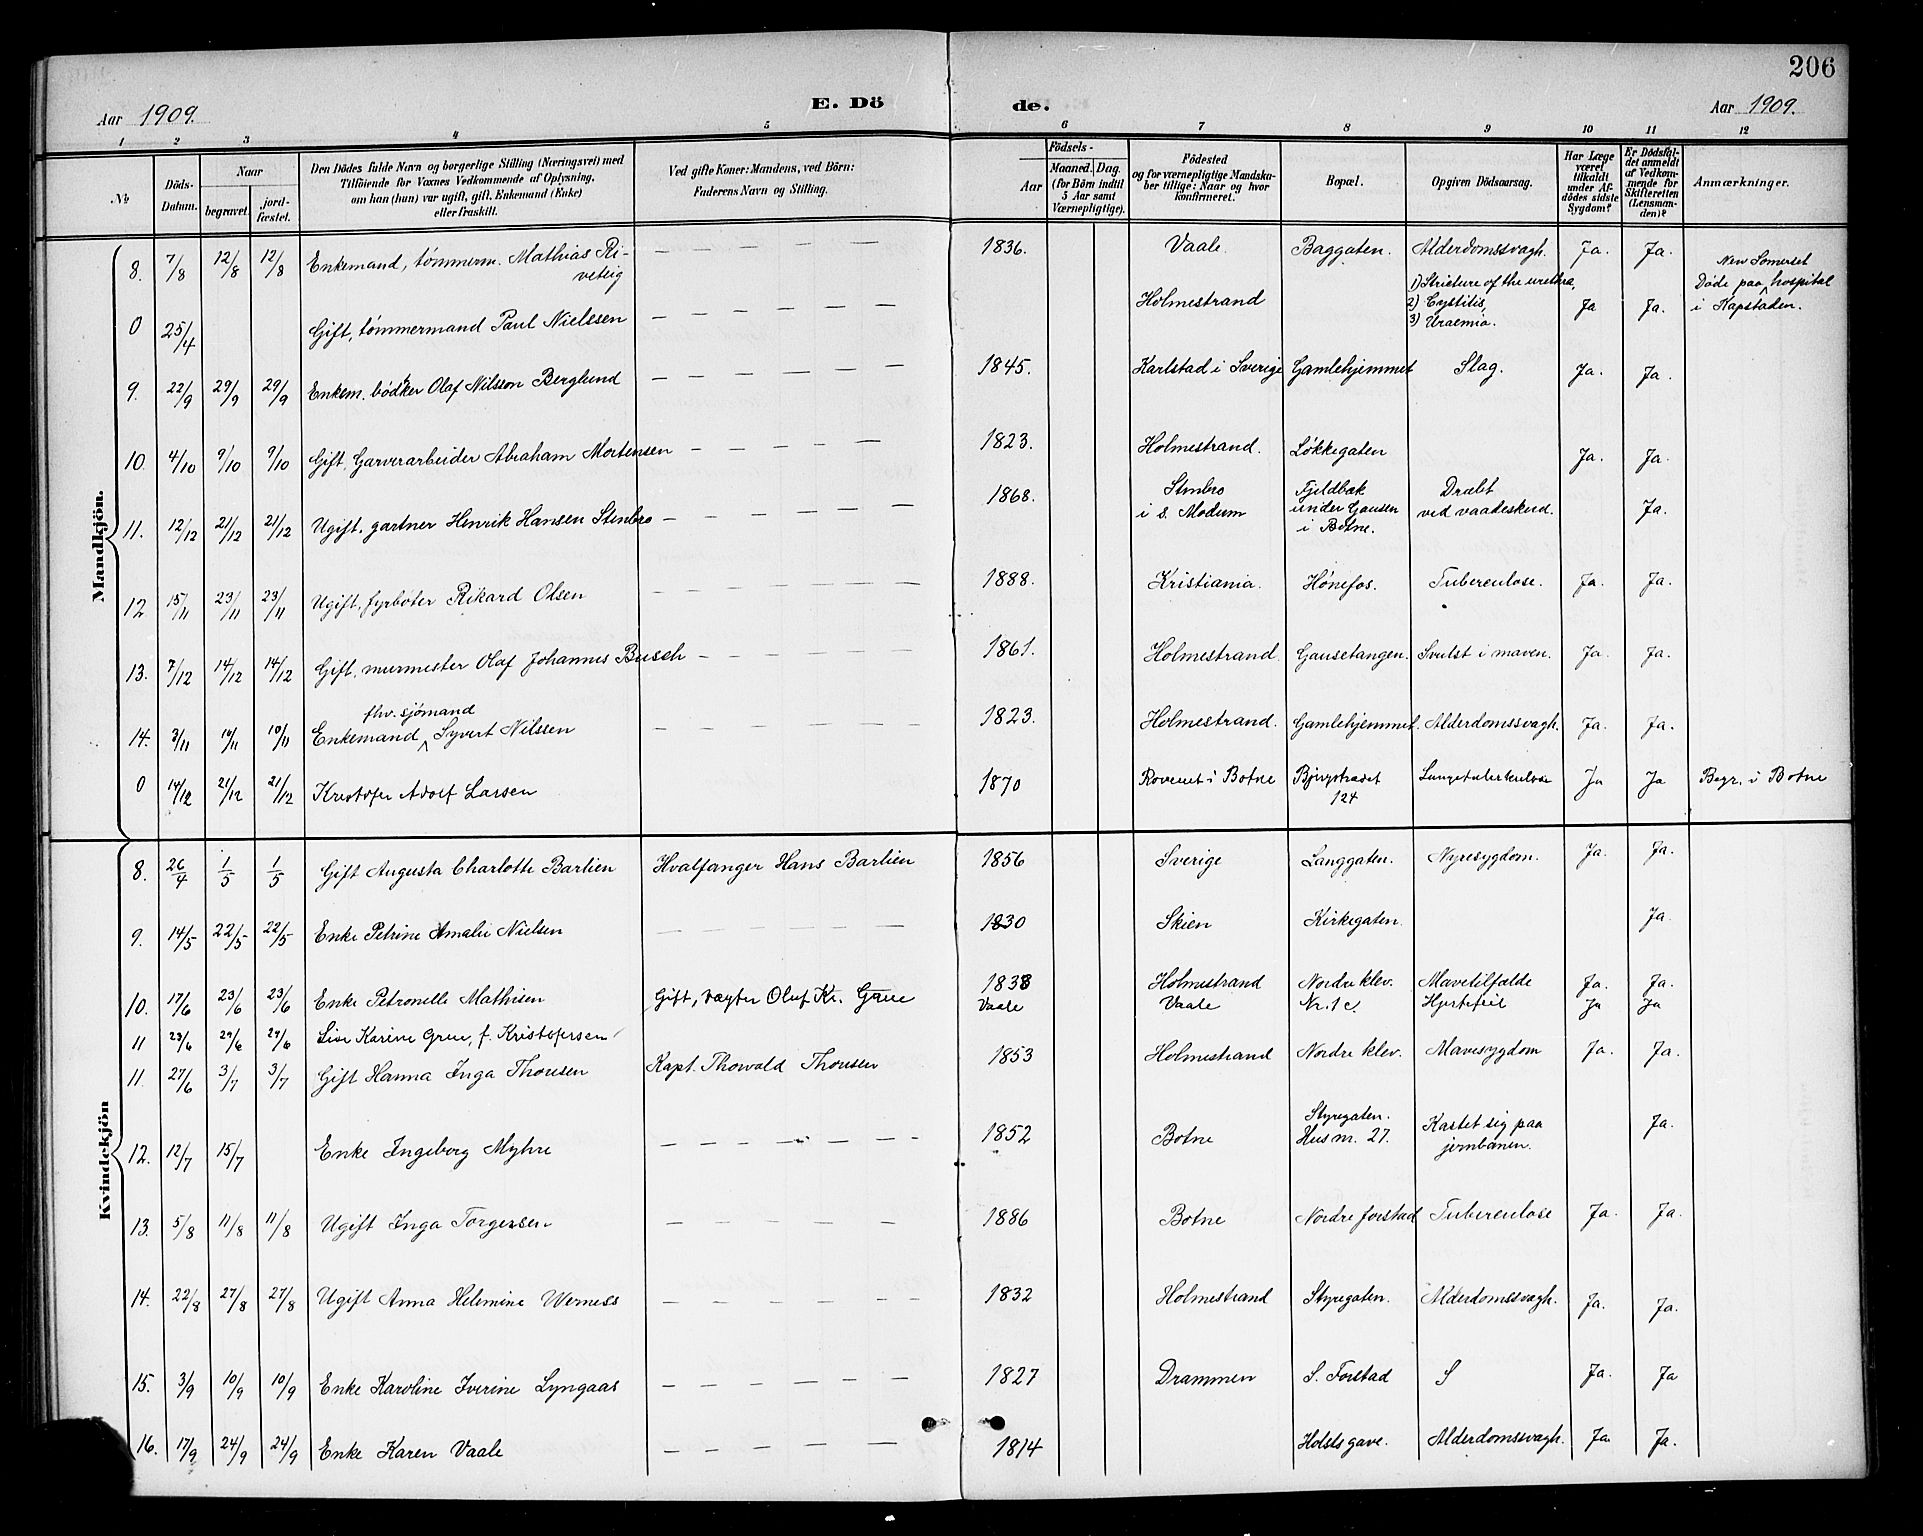 206
Aar 1909. E. Dö de. Aar 1909.
1 2 3 4 5 6 7 8 9 10 11 12
No
Döds-Datum.
Naar begravet. jordfæstet.
Den Dödes fulde Navn og borgerlige Stilling (Næringsvei) med Tilföiende for Voxnes Vedkommende af Oplysning, om han (hun) var ugift, gift, Enkemand (Enke) eller fraskilt.
Ved gifte Koner: Mandens, ved Börn: Faderens Navn og Stilling.
Födsels- Aar Maaned. Dag. (for Börn indtil 5 Aar samt Værnepligtige).
Födested og for værnepligtige Mandskaber tillige: Naar og hvor konfirmeret.
Bopæl.
Opgiven Dödsaarsag.
Har Læge været tilkaldt under Afdödes sidste Sygdom?
Er Dödsfaldet anmeldt af Vedkommende for Skifteretten (Lensmanden)?
Anmærkninger.
Mandkjön.
8. 7/8 12/8 12/8 Enkemand, tømmerm. Mathias Riveteig — — — — — 1836. Vaale. Baggaten. Alderdomssvagh. Ja. Ja.
0 25/4 Gift, tømmermand Paul Nielssen — — — — — Holmestrand 1) Stricture of the urethra, 2) Cystitis, 3) Uraemia. Ja Ja. Døde paa New Somerset hospital i Kapstaden.
9. 22/9 29/9 29/9 Enkem. bødker Olaf Nilsson Berglund — — — — — — 1845. Karlstad i Sverige Gamlehjemmet Slag. Ja. Ja.
10. 4/10 9/10 9/10 Gift, Garverarbeider Abraham Mortensen — — — — — 1823. Holmestrand. Løkkegaten Ja. Ja.
11. 12/12 21/12 21/12 Ugift, gartner Henrik Hansen Stenbro — — — — — — 1868. Stenbro i S. Modum Fjeldbæk under Gausen i Botne. Dræbt ved vaadeskud. Ja.
12 15/11 23/11 23/11 Ugift, fyrbøter Rikard Olsen — — — — — — 1888. Kristiania. Hønefos. Tuberculose. Ja. Ja.
13. 7/12 14/12 14/12 Gift, murmester Olaf Johannes Busch — — — — — 1861. Holmestrand. Gausetangen. Svulst i maven. Ja. Ja.
14. 3/11 10/11 10/11 Enkemand fhv. sjømand Syvert Nilssen — — — — — — 1823. Holmestrand. Gamlehjemmet. Alderdomssvagh. Ja. Ja.
0 14/12 21/12 21/12 Kristofer Adolf Larsen 1870 i Botne 124 Lungetuberkulose Ja Ja Begr. i Botne
Kvindekjön
8. 26/4 1/5 1/5 Gift Augusta Charlotte Barlien Hvalfanger Hans Barlien 1856 Sverige Langgaten. Nyresygdom. Ja. Ja.
9. 14/5 22/5 22/5 Enke Petrine Amalie Nielsen — — — — — — 1830 Skien Kirkegaten. Ja.
10. 17/6 23/6 23/6 Enke Petronelle Mathisen 1838 Holmestrand Nordre klev. Mavetilfælde Ja. Ja.
11 23/6 29/6 29/6 Lise Karine Grue, f. Kristofersen Gift, vægter Oluf Kr. Grue Vaale Vaale Nr. 1 c. Hjertefeil Ja Ja
11. 27/6 3/7 3/7 Gift Hanna Inga Thousen Kapt. Thorvald Thousen 1853 Holmestrand Nordre klev. Mavesygdom Ja. Ja.
12. 12/7 15/7 Enke Ingeborg Myhre — — — — — — 1852 Botne Styregaten. Hus nr. 27. Kastet sig paa jernbanen. Ja.
13. 5/8 11/8 11/8 Ugift Inga Torgersen — — — — — — 1886 Botne Nordre forstad Tuberculose Ja. Ja.
14. 22/8 27/8 27/8 Ugift Anna Helemine Werness — — — — — — 1832 Holmestrand Styregaten. Alderdomssvagh. Ja. Ja.
15. 3/9 10/9 10/9 Enke Karoline Iverine Lyngaas — — — — — — 1827 Drammen S. Forstad S Ja. Ja
16. 17/9 24/9 24/9 Enke Karen Vaale — — — — — — 1814 Holsts gave. Alderdomssvagh. Ja Ja.